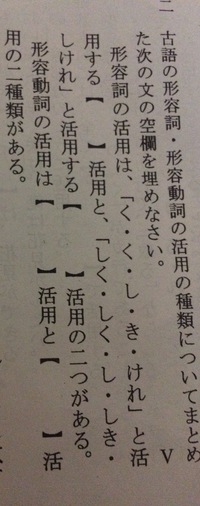 二
古語の形容詞・形容動詞の活用の種類についてまとめ
た次の文の空欄を埋めなさい。 V
形容詞の活用は、「く・く・し・き・けれ」と活
用する【 】活用と、「しく・しく・し・しき・
しけれ」と活用する【 】活用の二つがある。
形容動詞の活用は【 】活用と【 】活
用の二種類がある。